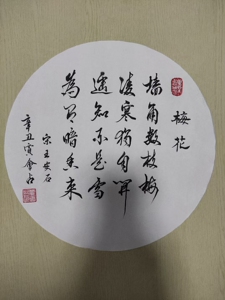 梅花
墙角数枝梅
凌寒独自开
遥知不是雪
为有暗香来
宋王安石
辛丑寅会占